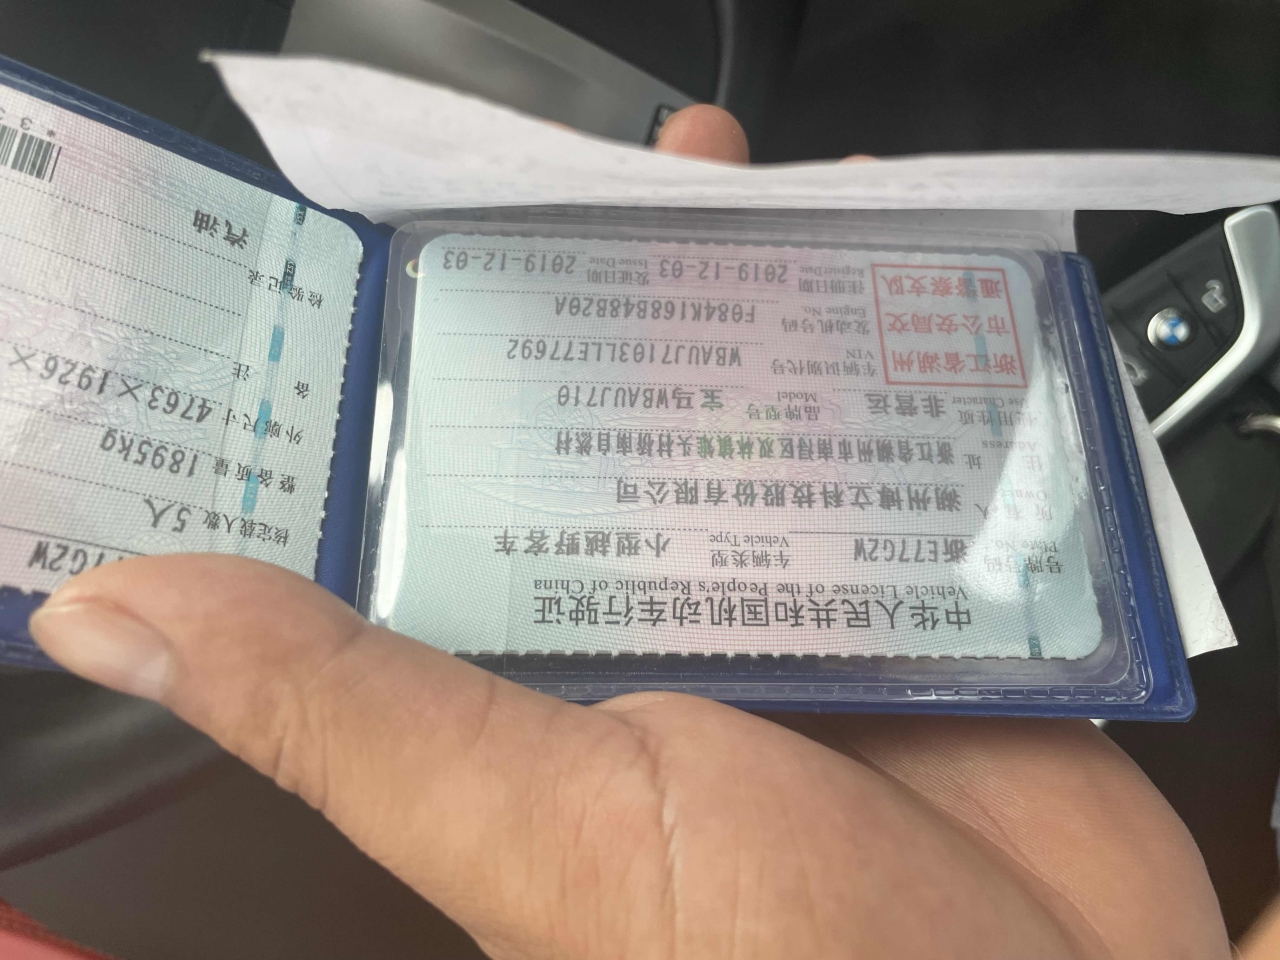 中华人民共和国机动车行驶证
Vehicle License of the People's Republic of China
号牌号码 浙E77G2W 车辆类型 小型越野客车
Plate No. Vehicle Type
所有人 湖州博立科技股份有限公司
Owner
住址 浙江省湖州市南浔区双林镇镇头村桥南自然村
Address
使用性质 非营运 品牌型号 宝马WBAUJ710
Use Character Model
浙江省湖州
市公安局交
通警察支队
车辆识别代号 WBAUJ7103LLE77692
VIN
发动机号码 F084K168B48B20A
Engine No.
注册日期 2019-12-03 发证日期 2019-12-03
Register Date Issue Date
77G2W
核定载人数 5人
整备质量 1895kg
外廓尺寸 4763×1926×
备注
检验记录
汽油